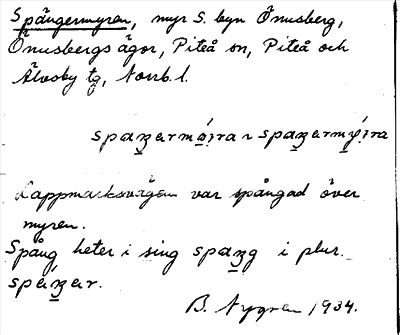 Spängermyren, myr S. byn Önusberg,
Önusbergs ägor, Piteå sn, Piteå och
Älvsby tg, Norrb. l.
Lappmarksvägen var spångad över
myren.
Spång heter i sing i plur.
B. Nygren 1934.